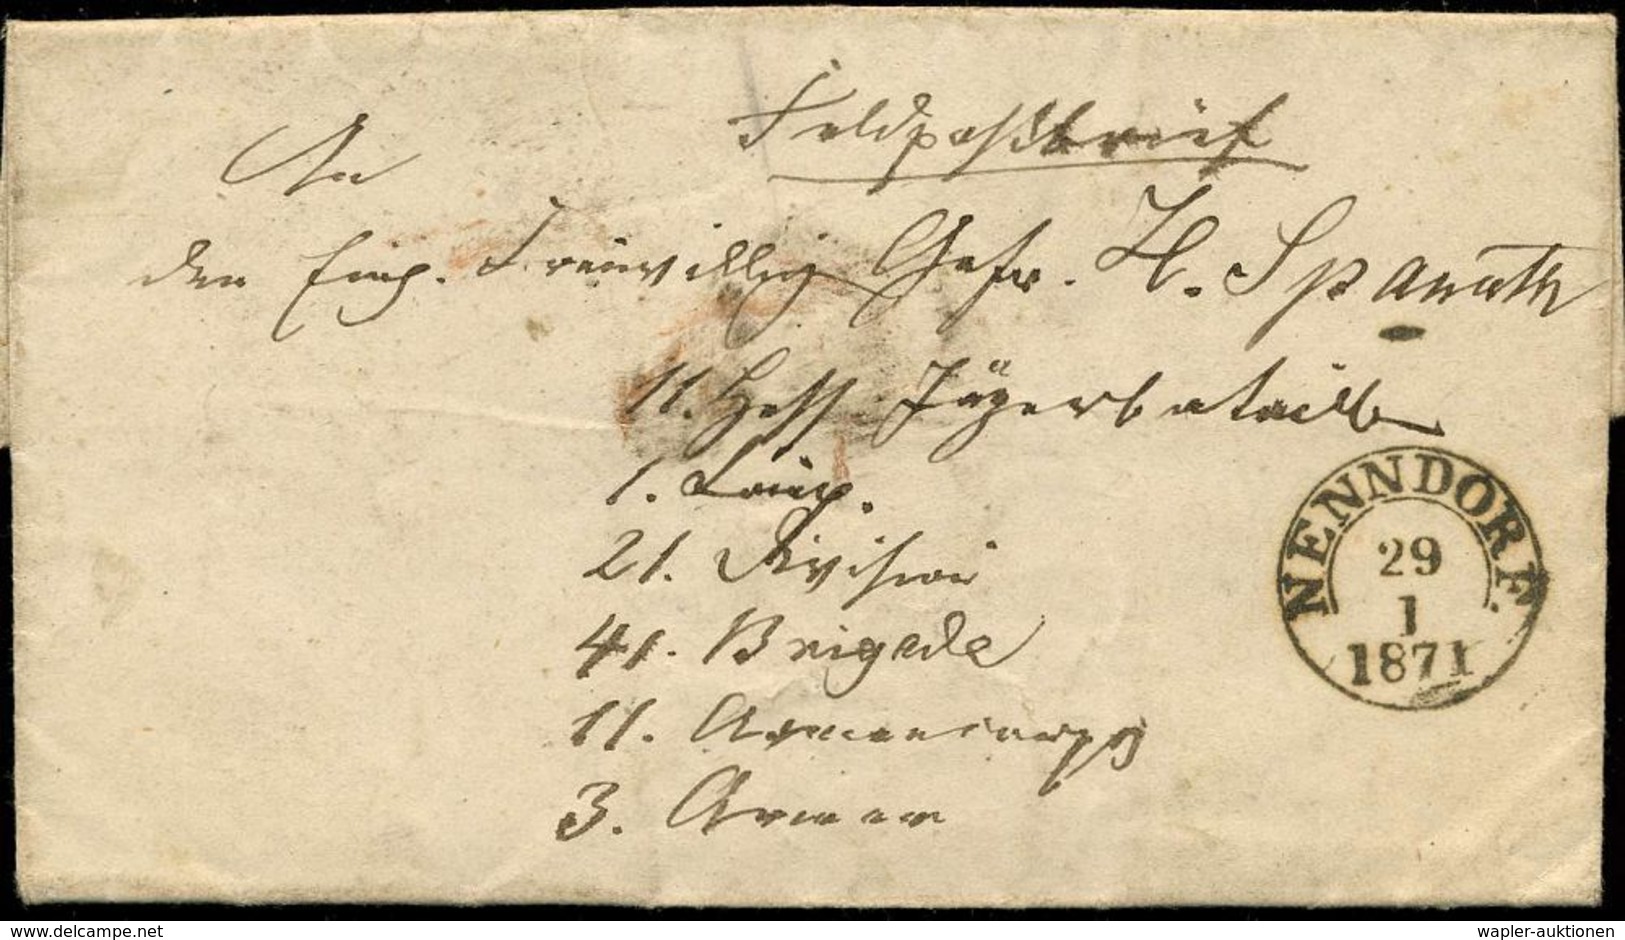 Feldpostbrief
An
den Einj. Freiwillig Gefr. H. Spanuth
11. Hess Jägerbataill
1. Comp.
21. Division
41. Brigade
11. Armeecorps
3. Armee
NENNDORF.
29
1
1871
www.delcampe.net
wapler-auktionen